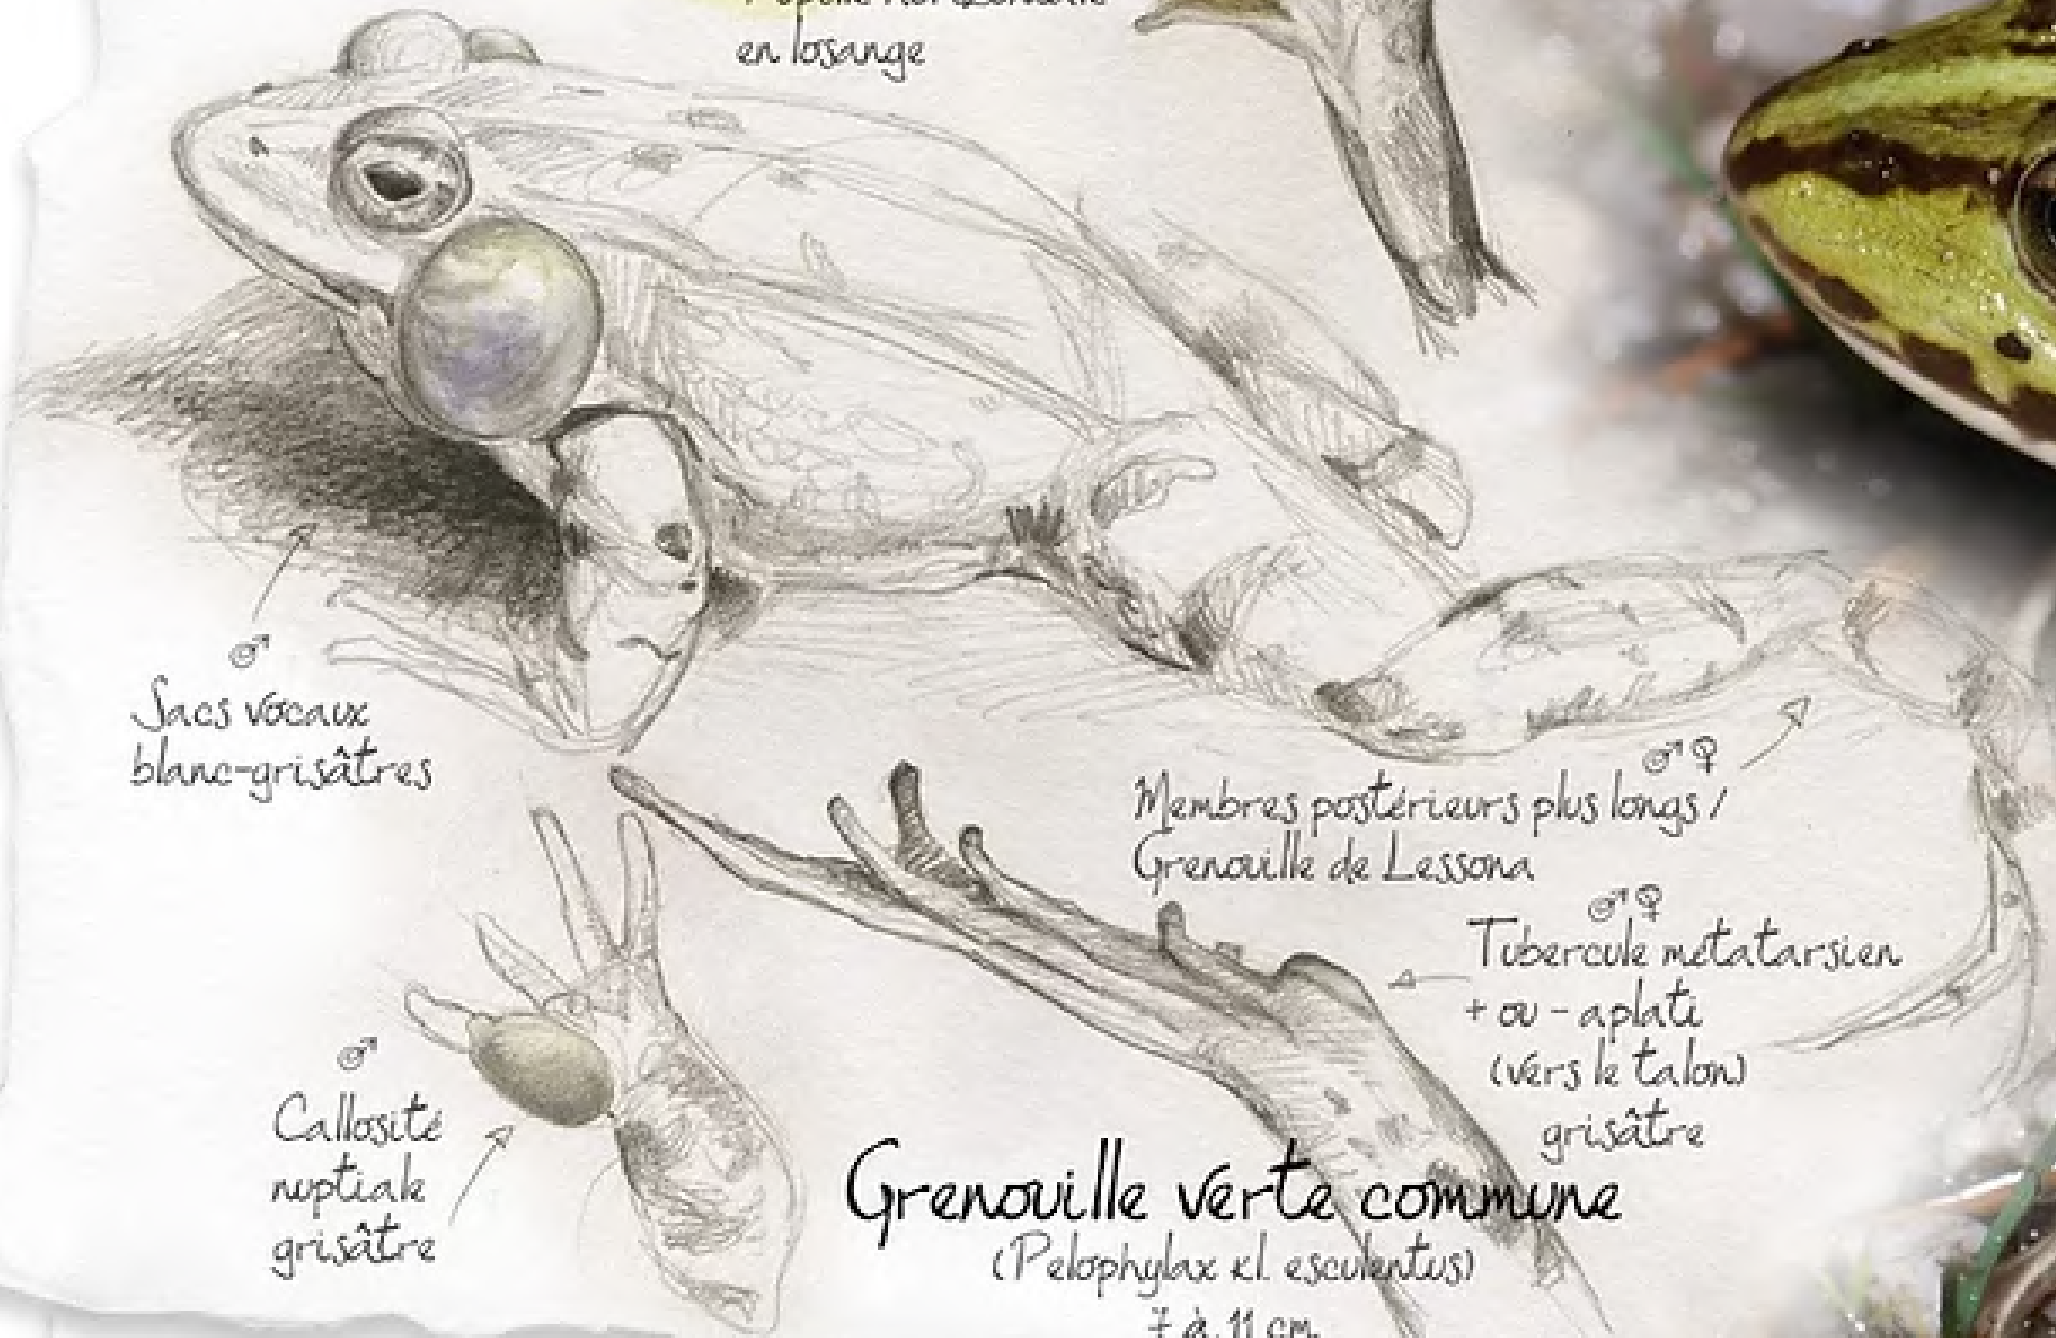 Pupille horizontale
en losange
♂
Sacs vocaux
blanc-grisâtres
♂♀
Membres postérieurs plus longs /
Grenouille de Lessona
♂♀
Tubercule métatarsien
+ ou - aplati
(vers le talon)
grisâtre
♂
Callosité
nuptiale
grisâtre
Grenouille verte commune
(Pelophylax kl. esculentus)
7 à 11 cm